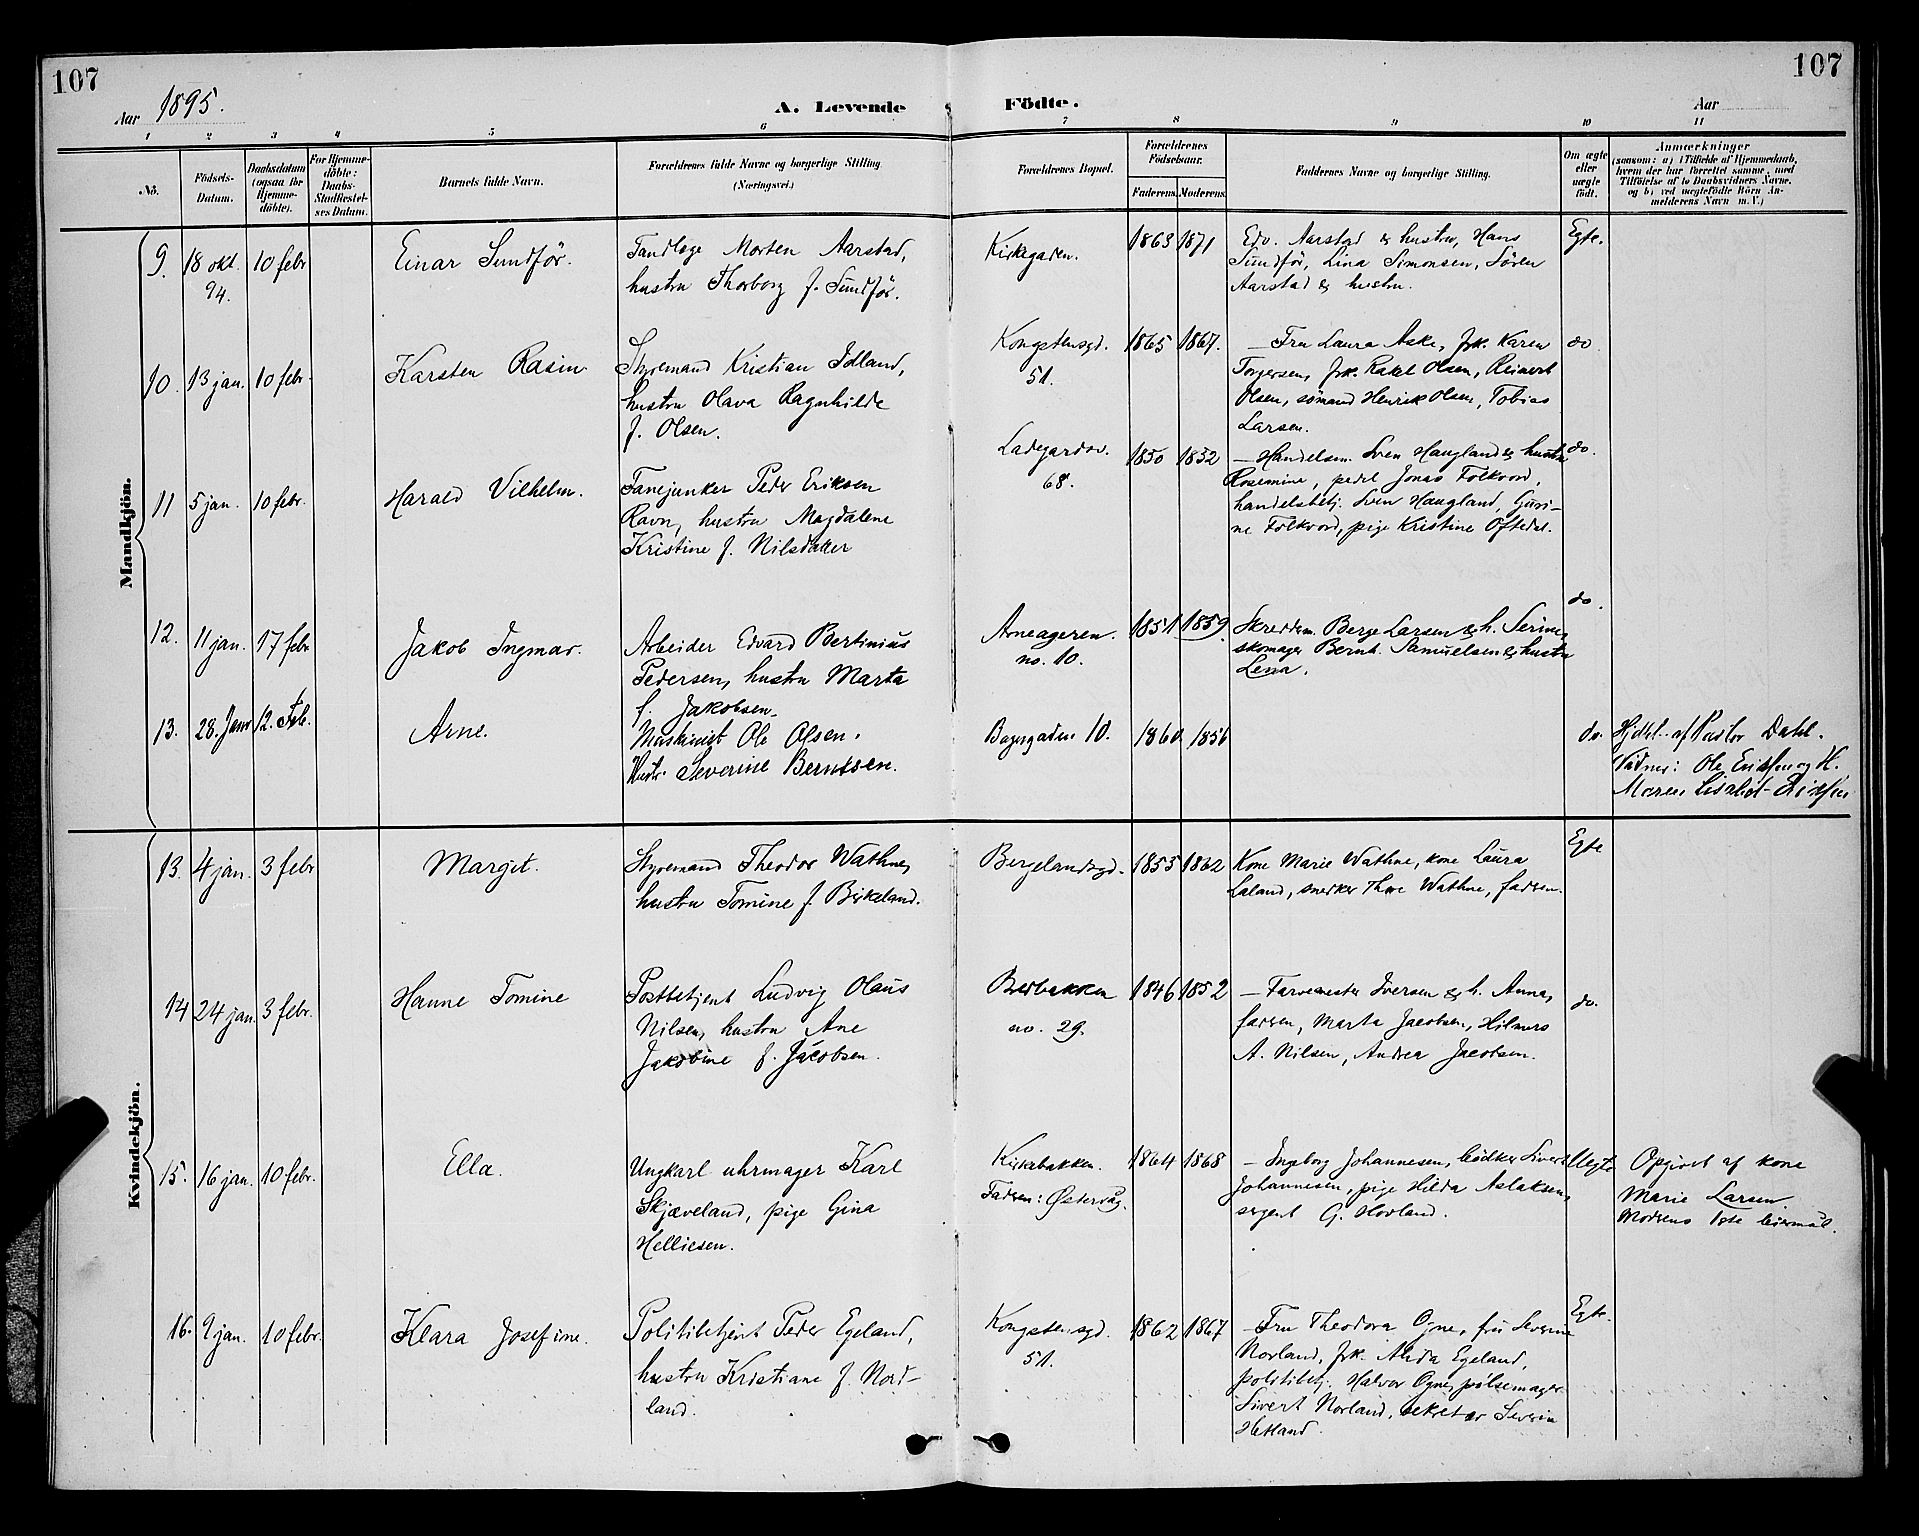 107
107
Aar 1895.
A. Levende Födte.
Aar
1 2 3 4 5 6 7 8 9 10 11
No.
Födsels-
Datum.
Daabsdatum
(ogsaa for
Hjemme-
döbte).
For Hjemme-
döbte:
Daabs-
Stadfæstel-
ses Datum.
Barnets fulde Navn.
Forældrenes fulde Navne og borgerlige Stilling
(Næringsvei.)
Forældrenes Bopæl.
Forældrenes
Födselsaar.
Faderens. Moderens.
Faddernes Navne og borgerlige Stilling.
Om ægte
eller
uægte
födt.
Anmærkninger
(saasom: a) i Tilfælde af Hjemmedaab,
hvem der har forrettet samme, med
Tilföielse af to Daabsvidners Navne,
og b) ved uægtefödte Börn An-
melderens Navn m. V.)
Mandkjön.
9. 18 okt. 94. 10 febr
Einar Sundför.
Tandlæge Morten Aarstad,
hustru Thorborg f. Sundför.
Kirkegaden.
1863 1871
Edv. Aarstad & hustru, Hans
Sundför, Lina Simonsen, Sören
Aarstad & hustru.
Egte.
10. 13 jan. 10 febr.
Karsten Rasin
Styremand Kristian Idland,
hustru Olava Ragnhilde
f. Olsen.
Kongstensgd.
51.
1865 1867.
— Fru Laura Aske, frk. Karen
Torgersen, frk. Rakel Olsen, Reinert
Olsen, sömand Henrik Olsen, Tobias
Larsen.
do
11 5 jan. 10 febr.
Harald Vilhelm.
Fanejunker Peder Eriksen
Ravn, hustru Magdalene
Kristine f. Nilsdaker
Ladegardsv.
68.
1850 1852
— Handelsm. Sven Haugland & hustru
Rosemine, pedel Jonas Folkvord,
handelsbetj. Sven Haugland, Guri-
ne Folkvord, pige Kristine Oftedal.
do.
12. 11 jan. 17 febr
Jakob Ingmar.
Arbeider Edvard Bertinius
Pedersen, hustru Marta
f. Jakobsen.
Arneageren.
no. 10.
1851 1859.
Skreddem. Berge Larsen & h. Serine,
skomager Bernh. Samuelsen & hustru
Lena.
do.
13. 28. Janr 12. Feb.
Arne.
Maskinist Ole Olsen.
Hustr. Severine Berntsen.
Bagergaden 10.
1860 1856
do.
Hjdbt. af Pastor Dahl.
Vidner: Ole Eriksen og H.
Maren Lisabet
Kvindekjön.
13. 4 jan. 3 febr
Margit.
Styremand Theodor Wathne,
hustru Tomine f. Birkeland.
Bergelandsgd.
1855 1862
Kone Marie Wathne, kone Laura
Laland, snedker Thore Wathne, faderen.
Egte
14 24 jan. 3 febr.
Hanne Tomine
Postbetjent Ludvig Olaus
Nilsen, hustru Ane
Jakobine f. Jacobsen.
Bredbakken
no. 29.
1846 1852
— Farvemester Iversen & h. Anna,
faderen, Marta Jacobsen, Hilmers
A. Nilsen, Andrea Jacobsen.
do.
15. 16 jan. 10 febr.
Ella.
Ungkarl uhrmager Karl
Skjæveland, pige Gina
Helliesen.
Kirkebakken.
Faderen: Østervåg.
1864 1868
— Ingeborg Johannesen, bödker Sivert
Johannesen, pige Hilda Aslaksen,
sergent G. Hovland.
Uegte
Opgivet af kone
Marie Larsen
Moderens 1ste leiermål.
16. 9 jan. 10 febr.
Klara Josefine.
Politibetjent Peder Egeland,
hustru Kristiane f. Nord-
land.
Kongstensgd.
51.
1862 1867
— Fru Theodora Ogne, fru Severine
Norland, frk. Alida Egeland,
politibetj. Halvor Ogne, pölsemager
Sivert Norland, sekretær Severin
Hetland.
Egte.